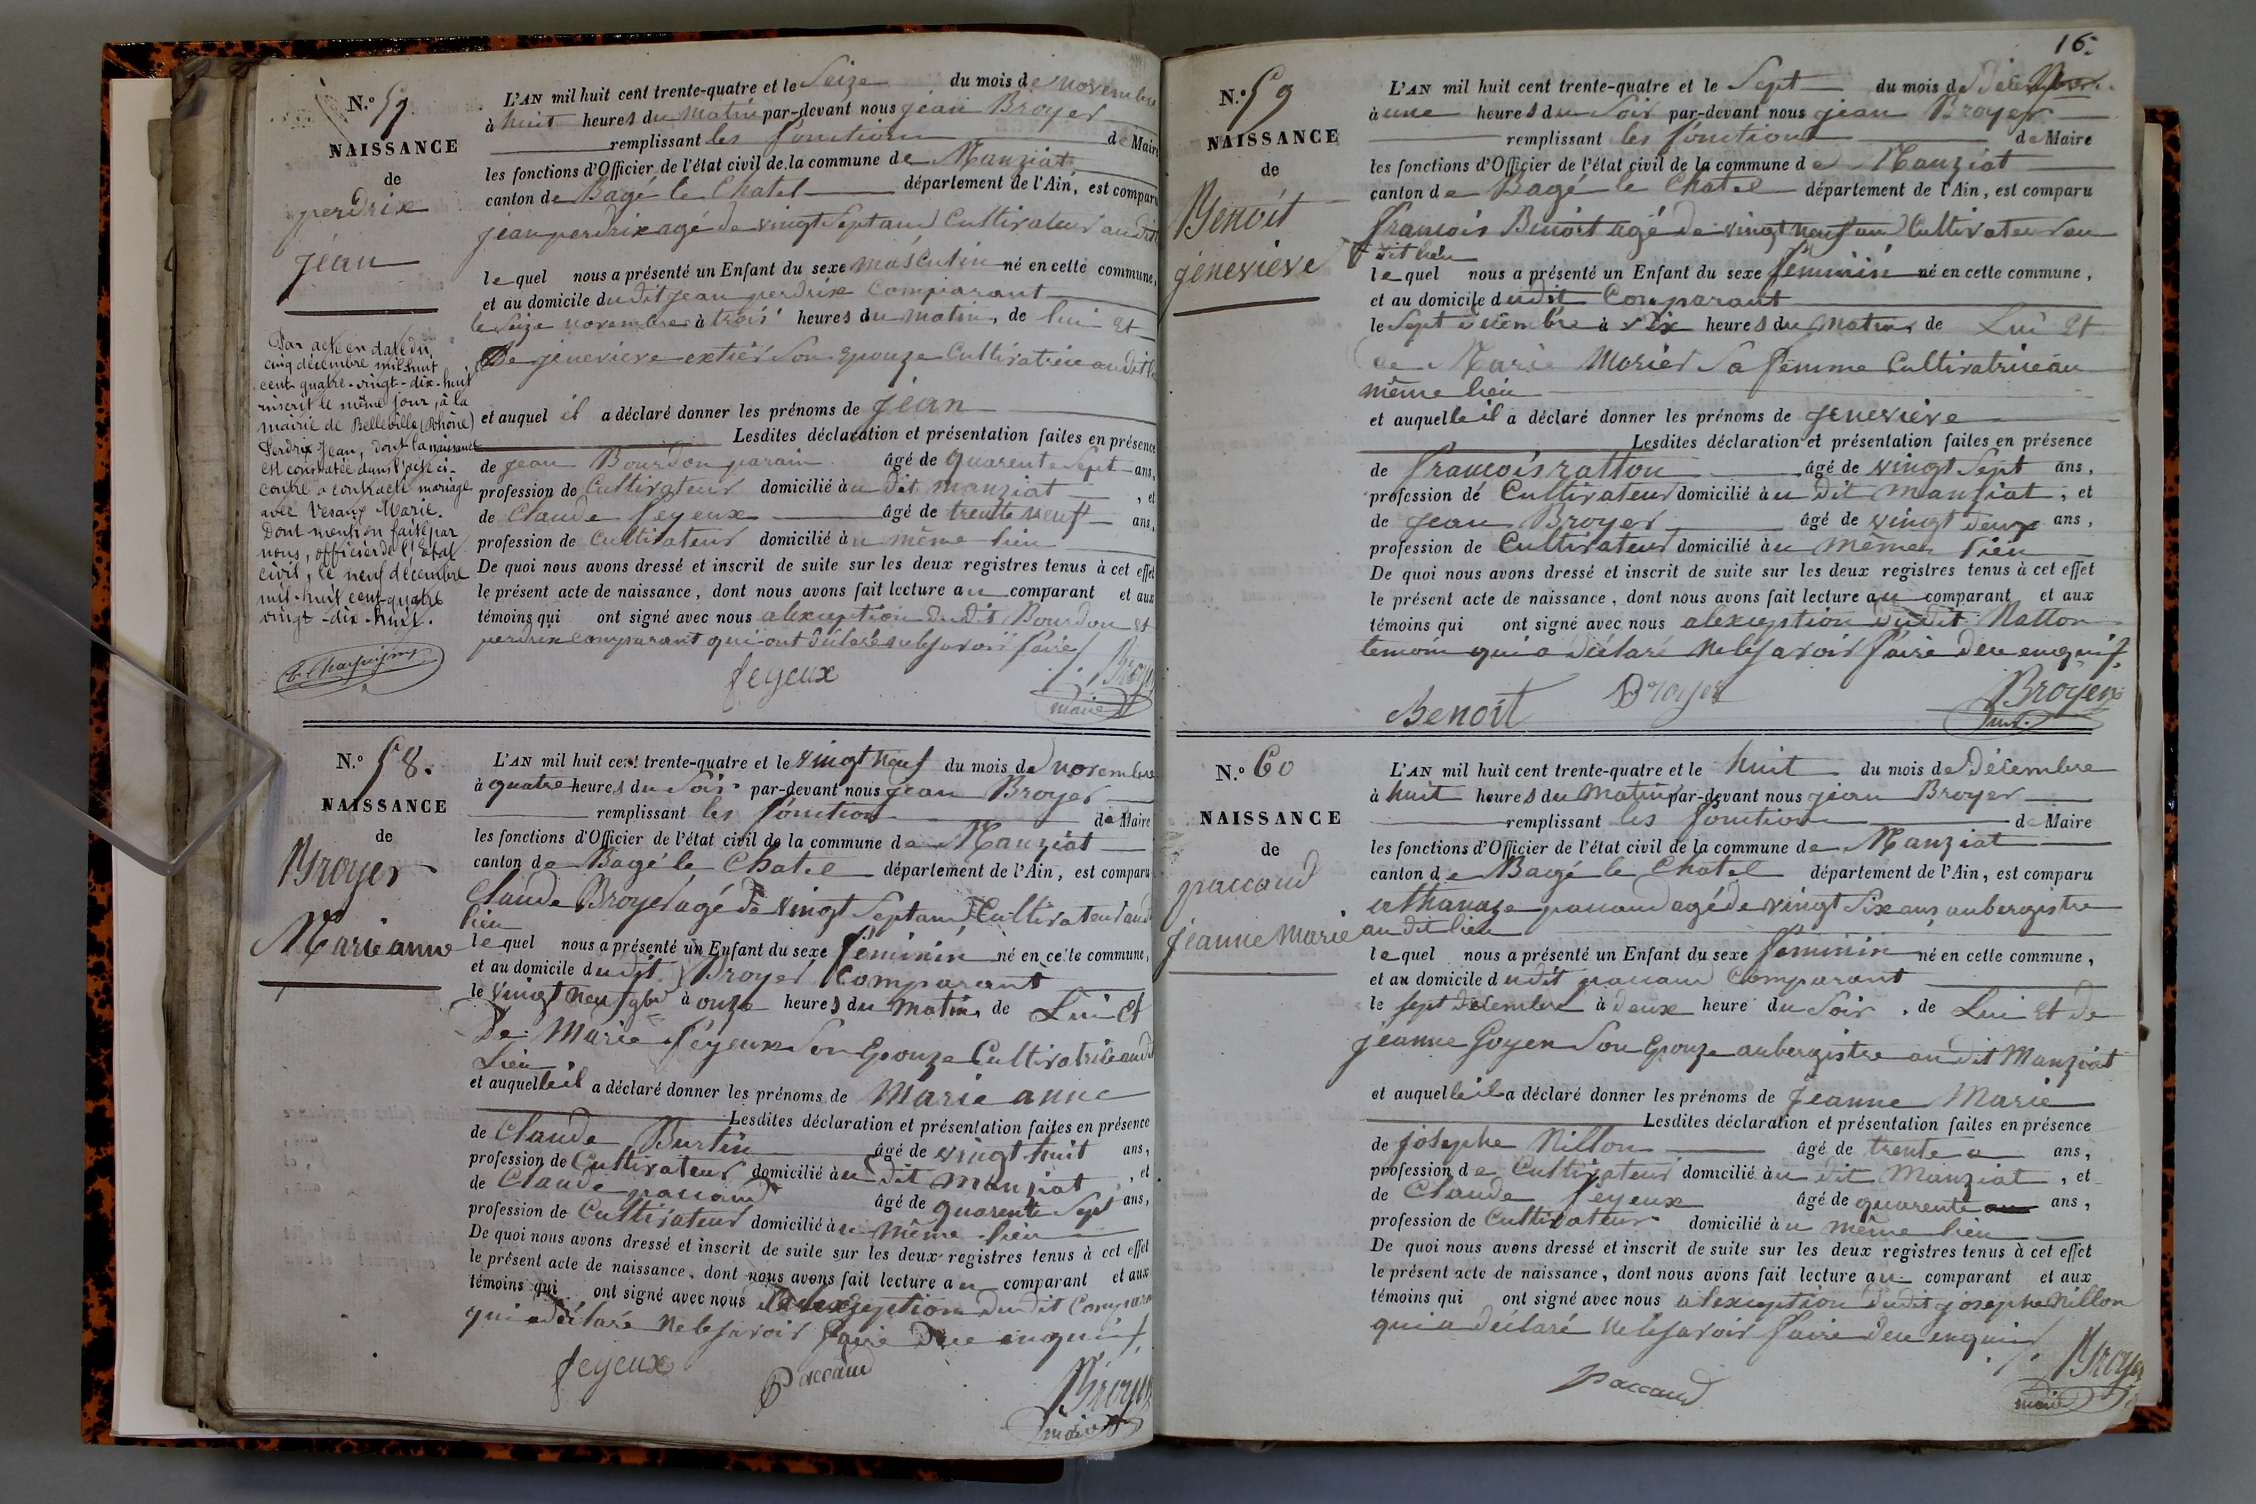 N.º 57
NAISSANCE
de
perdrix
jean
Par acte en date du
cinq décembre mil huit
cent quatre-vingt-dix-huit
inscrit le même jour, à la
mairie de Belleville (Rhône)
Perdrix Jean, dont la naissance
est constatée dans l'acte ci-
contre a contracté mariage
avec Vesaux Marie.
Dont mention faite par
nous, officier de l'état
civil, le neuf décembre
mil-huit cent-quatre
vingt-dix-huit.
L'AN mil huit cent trente-quatre et le Seize du mois de novembre
à huit heures du matin par-devant nous jean Broyer
remplissant les fonction de Maire
les fonctions d'Officier de l'état civil de la commune de Manziat
canton de Bagé le Chatel département de l'Ain, est comparu
jean perdrix agé de vingt Sept ans Cultivateur au dit
lequel nous a présenté un Enfant du sexe masculin né en cette commune,
et au domicile du dit jean perdrix comparant
le Seize novembre à trois heures du matin, de lui et
De jenevieve extier Son epouze Cultivatrice au dit
et auquel il a déclaré donner les prénoms de jean
Lesdites déclaration et présentation faites en présence
de jean Bourdon parain âgé de quarente Sept ans,
profession de Cultivateur domicilié au dit manziat, et
de Claude feyeux âgé de trentte neuf ans,
profession de Cultivateur domicilié au même lieu
De quoi nous avons dressé et inscrit de suite sur les deux registres tenus à cet effet
le présent acte de naissance, dont nous avons fait lecture au comparant et aux
témoins qui ont signé avec nous alexception du dit Bourdon et
perdrix comparant qui ont déclaré ne le savoir faire
feyeux Broyer
maire
N.º 58.
NAISSANCE
de
Broyer
Marie anne
L'AN mil huit cent trente-quatre et le vingt neuf du mois de novembre
à quatre heures du Soir par-devant nous jean Broyer
remplissant les fonction de Maire
les fonctions d'Officier de l'état civil de la commune de Manziat
canton de Bagé le Chatel département de l'Ain, est comparu
Claude Broyer agé de vingt Sept ans Cultivateur au dit
lieu
lequel nous a présenté un Enfant du sexe féminin né en cette commune,
et au domicile du dit Broyer Comparant
le vingt neuf 9bre à onze heures du matin, de Lui et
De Marie feyeux Son Epouze Cultivatrice au dit
Lieu
et auquelle il a déclaré donner les prénoms de Marie anne
Lesdites déclaration et présentation faites en présence
de Claude Burtin âgé de vingt huit ans,
profession de Cultivateur domicilié au dit manziat, et
de Claude paccaud âgé de quarente Sept ans,
profession de Cultivateur domicilié au même lieu
De quoi nous avons dressé et inscrit de suite sur les deux registres tenus à cet effet
le présent acte de naissance, dont nous avons fait lecture au comparant et aux
témoins qui ont signé avec nous alexception du dit Comparant
qui a déclaré ne le savoir faire dece enquis
feyeux Paccaud Broyer
maire
16.
N.º 59
NAISSANCE
de
Benoit
jenevieve
L'AN mil huit cent trente-quatre et le Sept du mois de décembre
à une heures du Soir par-devant nous jean Broyer
remplissant les fonction de Maire
les fonctions d'Officier de l'état civil de la commune de Manziat
canton de Bagé le Chatel département de l'Ain, est comparu
francois Benoit agé de vingt neuf ans Cultivateur au
dit lieu
lequel nous a présenté un Enfant du sexe féminin né en cette commune,
et au domicile du dit Comparant
le Sept décembre à Six heures du matin de Lui et
de Marie Morier Sa femme Cultivatrice au
même lieu
et auquelle il a déclaré donner les prénoms de jenevieve
Lesdites déclaration et présentation faites en présence
de francois ratton âgé de vingt Sept ans,
profession de Cultivateur domicilié au dit manziat, et
de jean Broyer âgé de vingt deux ans,
profession de Cultivateur domicilié au même lieu
De quoi nous avons dressé et inscrit de suite sur les deux registres tenus à cet effet
le présent acte de naissance, dont nous avons fait lecture au comparant et aux
témoins qui ont signé avec nous alexception du dit Ratton
temoin qui a déclaré ne le savoir faire dece enquis
Benoit Broyer Broyer
N.º 60
NAISSANCE
de
paccaud
jeanne marie
L'AN mil huit cent trente-quatre et le huit du mois de décembre
à huit heures du matin par-devant nous jean Broyer
remplissant les fonction de Maire
les fonctions d'Officier de l'état civil de la commune de Manziat
canton de Bagé le Chatel département de l'Ain, est comparu
athanaze paccaud agé de vingt Six ans aubergistre
au dit lieu
lequel nous a présenté un Enfant du sexe feminin né en cette commune,
et au domicile du dit paccaud Comparant
le Sept décembre à deux heure du Soir, de Lui et de
jeanne Goyon Son Epouze aubergistre au dit Manziat
et auquelle il a déclaré donner les prénoms de jeanne Marie
Lesdites déclaration et présentation faites en présence
de josephe Nillon âgé de trente ans,
profession de Cultivateur domicilié au dit Manziat, et
de Claude feyeux âgé de quarente ans,
profession de Cultivateur domicilié au même lieu
De quoi nous avons dressé et inscrit de suite sur les deux registres tenus à cet effet
le présent acte de naissance, dont nous avons fait lecture au comparant et aux
témoins qui ont signé avec nous alexception du dit josephe Nillon
qui a déclaré ne le savoir faire dece enquis
Paccaud Broyer
maire